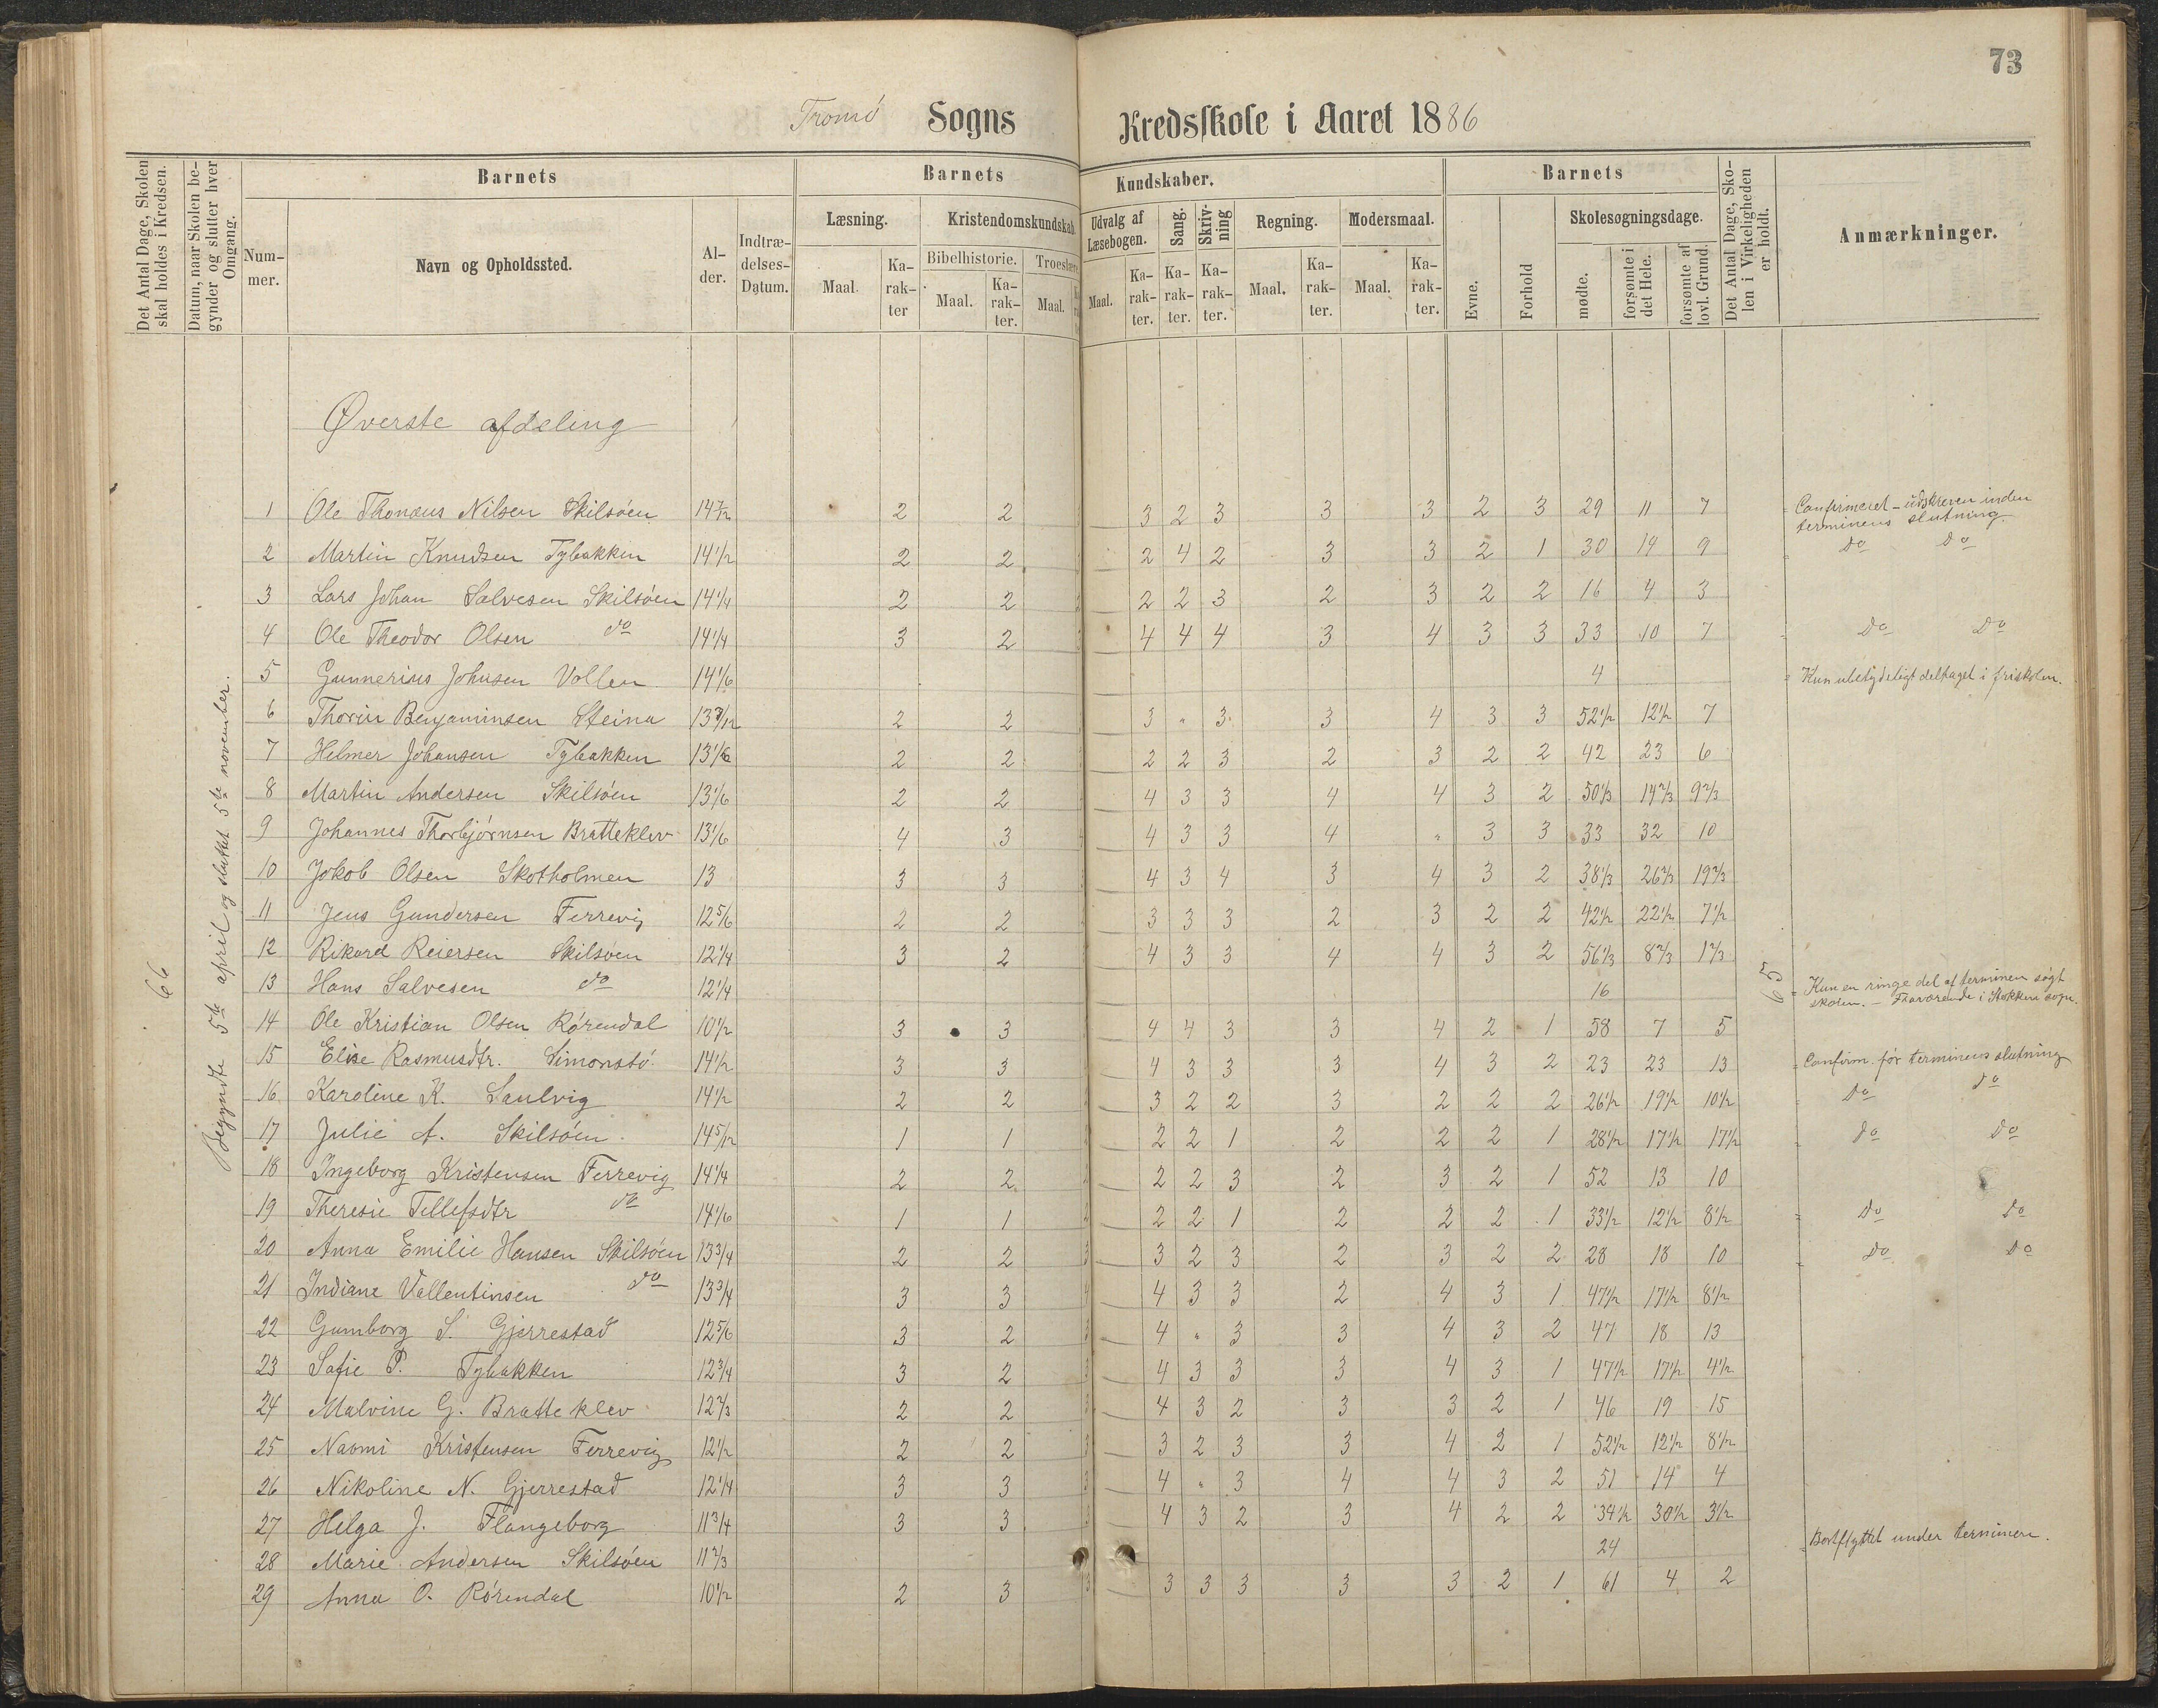 73
Tromø Sogns Kredsskole i Aaret 1886
Det Antal Dage, Skolen skal holdes i Kredsen.
Datum, naar Skolen begynder og slutter hver Omgang.
Barnets
Barnets Kundskaber.
Barnets
Det Antal Dage, Skolen i Virkeligheden er holdt.
Anmærkninger.
Nummer.
Navn og Opholdssted.
Alder.
Indtrædelses-Datum.
Læsning. Kristendomskundskab. Udvalg af Læsebogen. Sang. Skrivning Regning. Modersmaal.
Bibelhistorie. Troeslære
Maal. Karakter Maal. Karakter. Maal. Maal. Karakter. Karakter. Karakter. Maal. Karakter. Maal. Karakter.
Evne. Forhold Skolesøgningsdage.
mødte. forsømte i det Hele. forsømte af lovl. Grund.
66
Begyndte 5te april og sluttet 5te november.
65
Øverste afdeling
1 Ole Thomæus Nilsen Skilsøen 14 7/12 2 2 3 2 3 3 3 2 3 29 11 7 Confirmeret - udskreven inden terminens slutning.
2 Martin Knudsen Tybakken 14 1/2 2 2 2 4 2 3 3 2 1 30 14 9 do do
3 Lars Johan Salvesen Skilsøen 14 1/4 2 2 2 2 3 2 3 2 2 16 4 3
4 Ole Theodor Olsen do 14 1/4 3 2 4 4 4 3 4 3 3 33 10 7 do do
5 Gunnerius Johnsen Vollen 14 1/6 4 Kun ubetydeligt deltaget i friskolen.
6 Thorin Benjaminsen Steina 13 7/12 2 2 3 " 3 3 4 3 3 52 1/2 12 1/2 7
7 Helmer Johansen Tybakken 13 1/6 2 2 2 2 3 2 3 2 2 42 23 6
8 Martin Andersen Skilsøen 13 1/6 2 2 4 3 3 4 4 3 2 50 1/3 14 2/3 9 2/3
9 Johannes Thorbjørnsen Bratteklev 13 1/6 4 3 4 3 3 4 " 3 3 33 32 10
10 Jokob Olsen Skotholmen 13 3 3 4 3 4 3 4 3 2 38 1/3 26 2/3 19 2/3
11 Jens Gundersen Færrevig 12 5/6 2 2 3 3 3 2 3 2 2 42 1/2 22 1/2 7 1/2
12 Rikard Reiersen Skilsøen 12 1/4 3 2 4 3 3 4 4 3 2 56 1/3 8 2/3 1 2/3
13 Hans Salvesen do 12 1/4 16 Kun en ringe del af terminen søgt skolen. - Fraværende i Stokken sogn.
14 Ole Kristian Olsen Rørendal 10 1/2 3 3 4 4 3 3 4 2 1 58 7 5
15 Elise Rasmusdtr. Simonstø 14 1/2 3 3 4 3 3 3 4 3 2 23 23 13 Confirm. før terminens slutning
16 Karoline K. Saulvig 14 1/2 2 2 3 2 2 3 2 2 2 26 1/2 19 1/2 10 1/2 do do
17 Julie A. Skilsøen 14 5/12 1 1 2 2 1 2 2 2 1 28 1/2 17 1/2 17 1/2 do do
18 Ingeborg Kristensen Færrevig 14 1/4 2 2 2 2 3 2 3 2 1 52 13 10
19 Theresie Tellefsdtr do 14 1/6 1 1 2 2 1 2 2 2 1 33 1/2 12 1/2 8 1/2 do do
20 Anna Emilie Hansen Skilsøen 13 3/4 2 2 3 3 2 3 2 3 2 2 28 18 10 do do
21 Indiane Vallentinsen do 13 3/4 3 3 4 4 3 3 2 4 3 1 47 1/2 17 1/2 8 1/2
22 Gumborg S. Gjerrestad 12 5/6 3 2 3 4 " 3 3 4 3 2 47 18 13
23 Safie P. Tybakken 12 3/4 3 2 3 4 3 3 3 4 3 1 47 1/2 17 1/2 4 1/2
24 Malvine G. Bratteklev 12 2/3 2 2 3 4 3 2 3 3 2 1 46 19 15
25 Naomi Kristensen Færrevig 12 1/2 2 2 3 3 2 3 3 4 2 1 52 1/2 12 1/2 8 1/2
26 Nikoline N. Gjerrestad 12 1/4 3 3 3 4 " 3 4 4 3 2 51 14 4
27 Helga J. Flangeborg 11 3/4 3 3 4 3 2 3 4 2 2 34 1/2 30 1/2 3 1/2
28 Marie Andersen Skilsøen 11 2/3 24 Bortflyttet under terminen.
29 Anna O. Rørendal 10 1/2 2 3 3 3 3 3 3 3 2 1 61 4 2